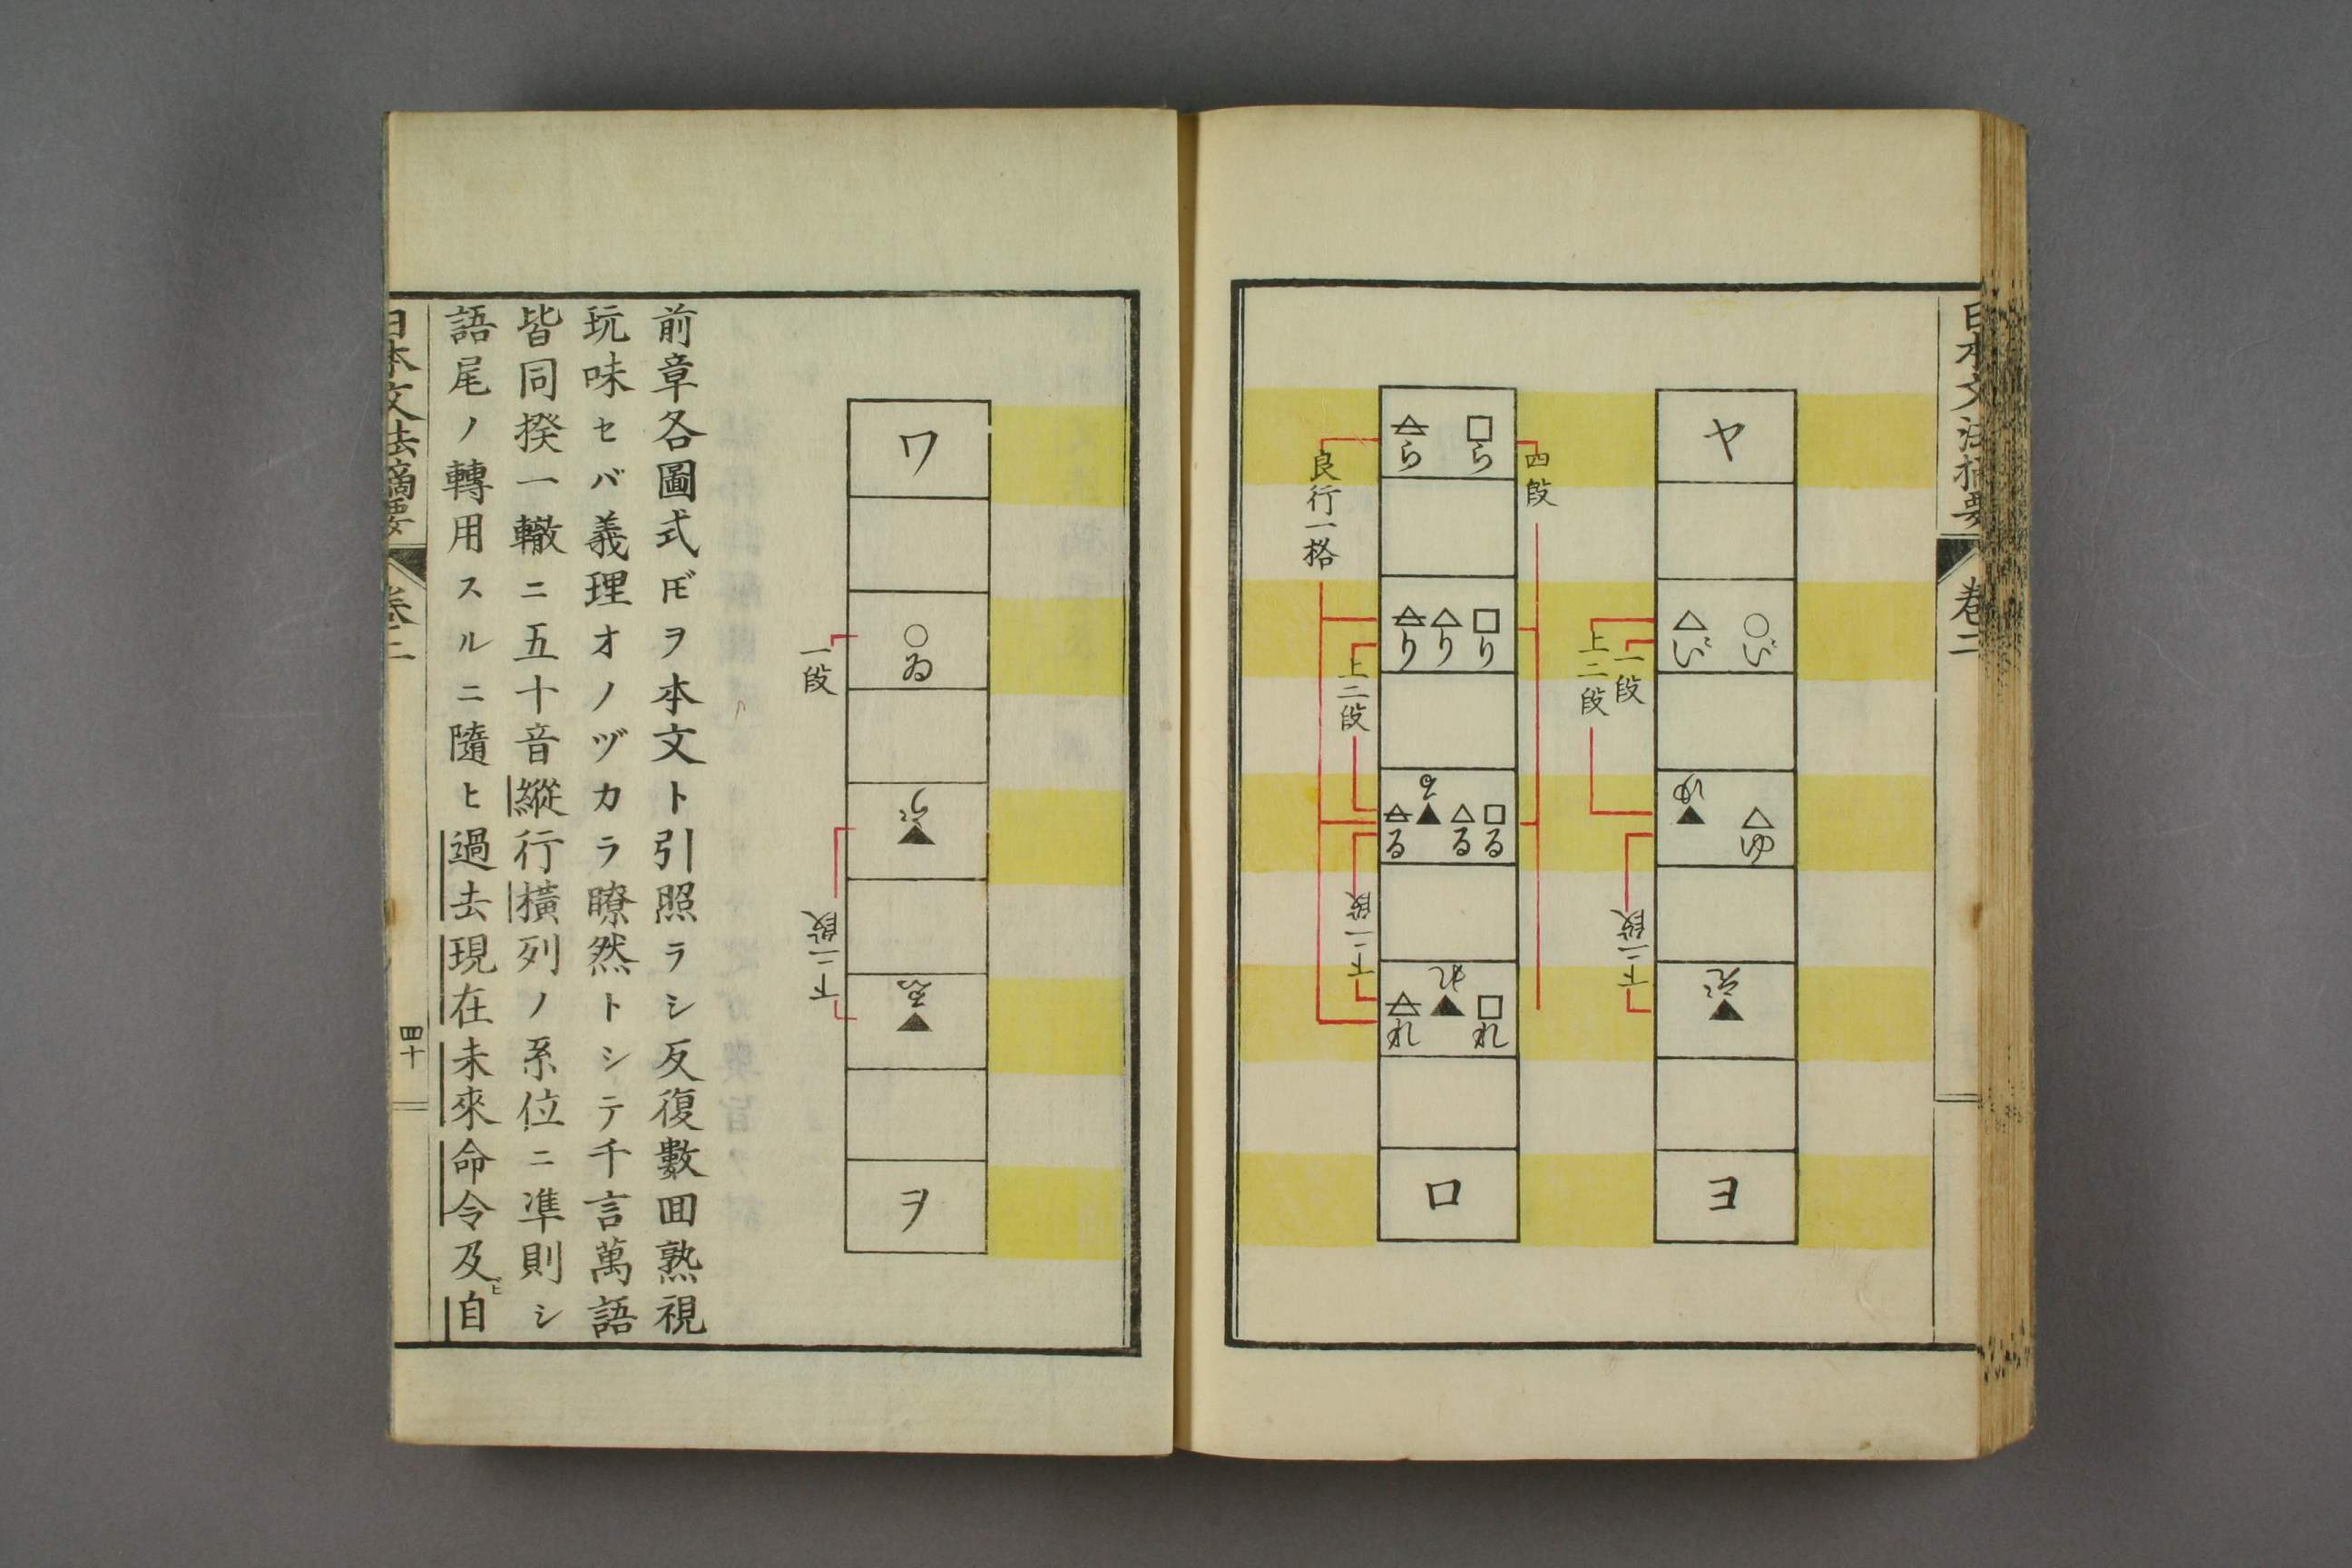 日本文法摘要
巻二
ヤ
○い゛
△い゛
△ゆ
▲ゆ
▲え゛
ヨ
一段
上二段
下二段
□ら
△ら
□り
△り
△り
□る
△る
▲る
△る
□れ
▲れ
△れ
ロ
四段
良行一格
上二段
下二段
ワ
○ゐ
▲う゛
▲ゑ
ヲ
一段
下二段
前章各圖式𪜈ヲ本文ト引照ラシ反復數囬熟視
玩味セバ義理オノヅカラ瞭然トシテ千言萬語
皆同揆一轍ニ五十音縱行橫列ノ系位ニ凖則シ
語尾ノ轉用スルニ隨ヒ過去現在未來命令及ビ自
日本文法摘要
巻二
四十